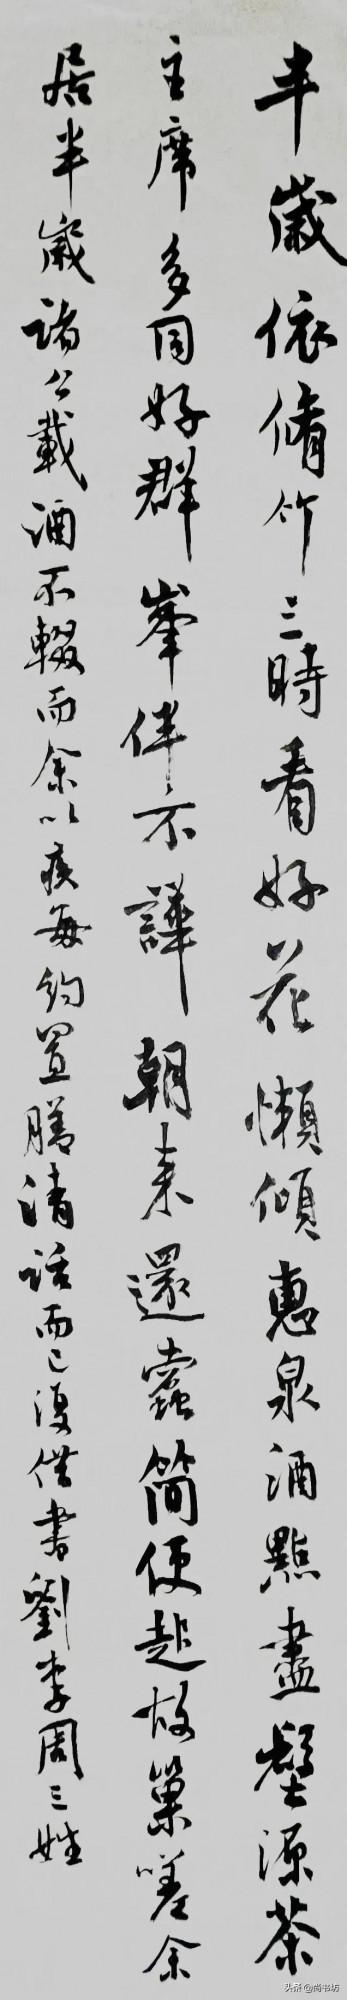 半歲依脩竹三時看好花懶傾惠泉酒點盡壑源茶
主席多同好群峯伴不譁朝來還蠹簡便起故巢嗟余
居半歲諸公載酒不輟而余以疾每約置膳清話而已復借書劉李周三姓
头条@尚书坊